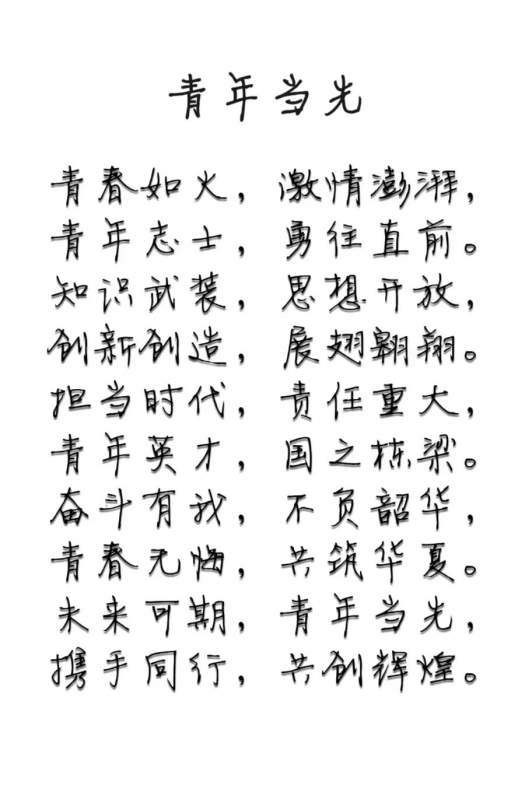 青年当先
青春如火，激情澎湃，
青年志士，勇往直前。
知识武装，思想开放，
创新创造，展翅翱翔。
担当时代，责任重大，
青年英才，国之栋梁。
奋斗有我，不负韶华，
青春无悔，共筑华夏。
未来可期，青年当先，
携手同行，共创辉煌。